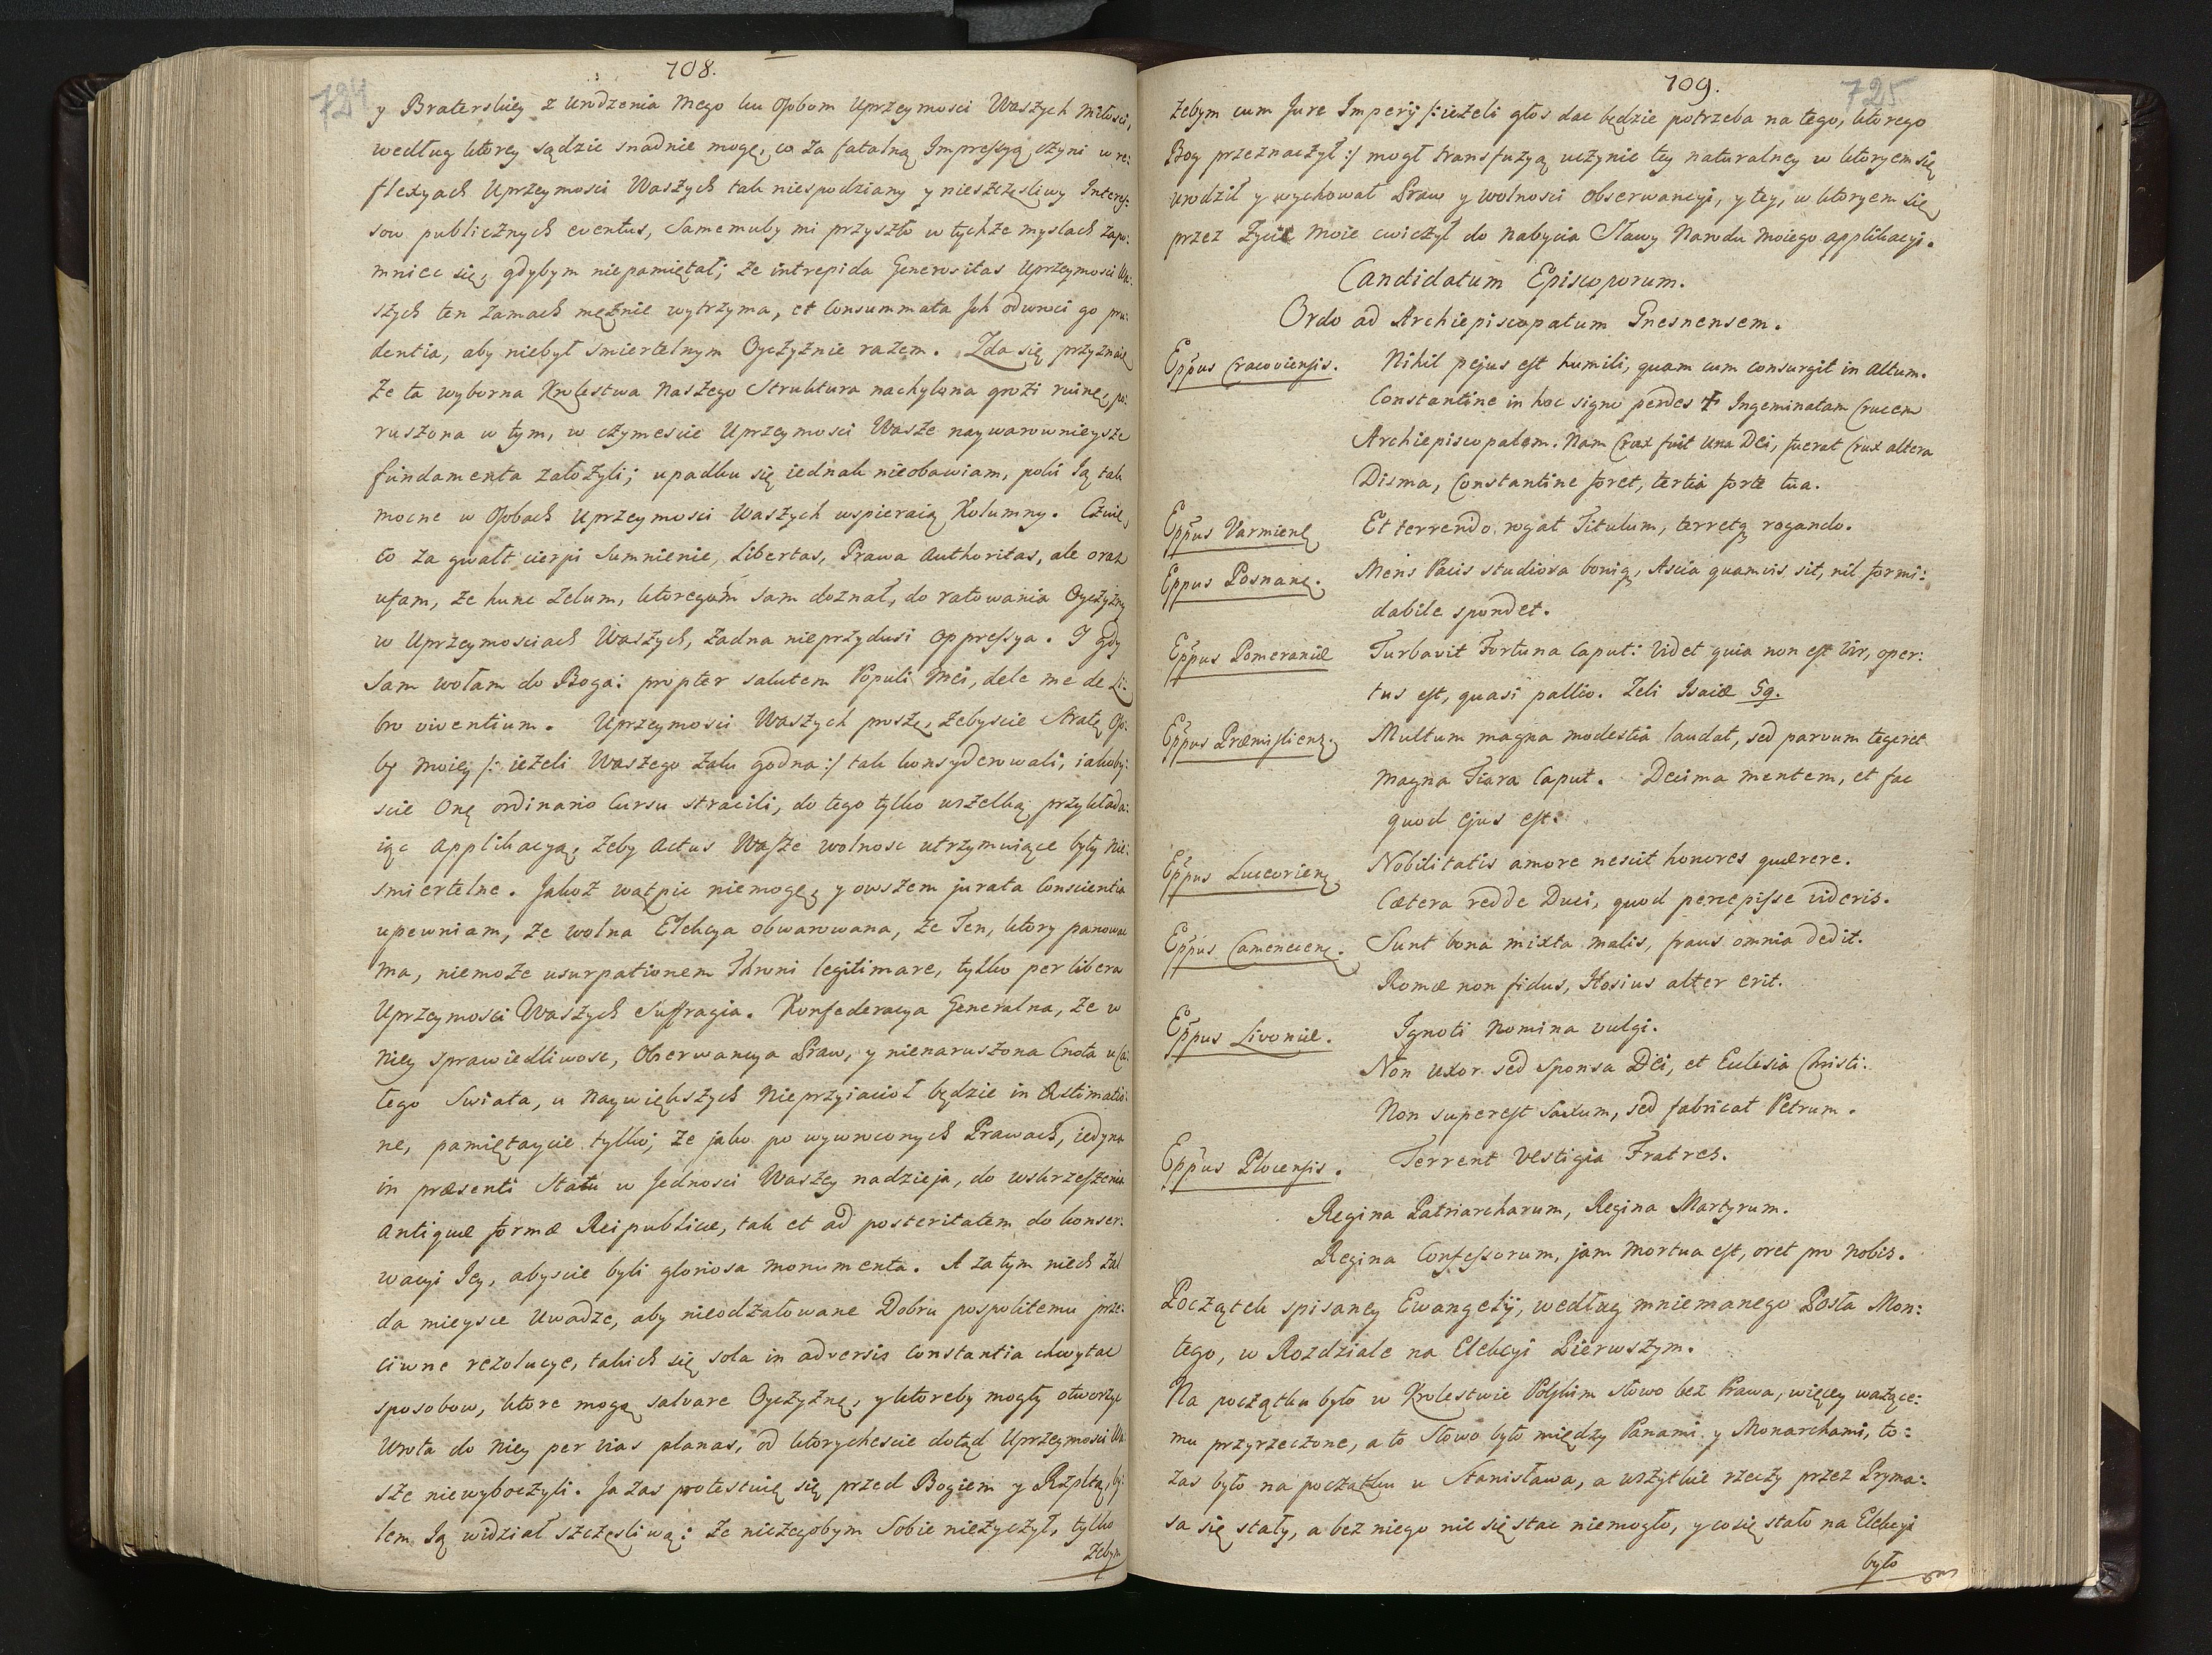 724
708.
y Braterskiey z urodzenia mego ku osobom Uprzeymosci Waszych miłosci,
według ktorey sądzic snadnie mogę, co za fatalną Impressyą czyni w re:
flexyach Uprzeymosci Waszych tak niespodziany y nieszczęsliwy Interes:
sow publicznych eventus, Samemuby mi przyszło w tychże myslach zapo:
mniec się, gdybym niepamiętał; że intrepida Generositas Uprzeymosci Wa:
szych ten zamach mężnie wytrzyma, et Consummata Ich odwroci go pru:
dentia, aby niebył smiertelnym Oyczyznie razem. Zda się przyznaię
że ta wyborna Krolestwa Naszego Struktura nachylona grozi ruinę, po:
ruszona w tym, w czymescie Uprzeymosci Wasze naywarownieysze
fundamenta założyli; upadku się iednak nieobawiam, poki Ią tak
mocne w Osobach Uprzeymosci Waszych wspieraią Kolumny. Czuię,
co za gwałt cierpi Sumnienie, Libertas, Prawa Authoritas, ale oraz
ufam, że hunc Zelum, ktoregom sam doznał, do ratowania Oyczyzny
w Uprzeymosciach Waszych, żadna nieprzydusi oppressya. I gdy
Sam wołam do Boga: propter salutem Populi Mei, dele me de Li:
bro viventium. Uprzeymosci Waszych proszę, żebyscie stratę Oso:
by moiey /: ieżeli Waszego żalu godna :/ tak konsyderowali, iakoby:
scie Onę ordinario Cursu stracili, do tego tylko wszelką przykłada:
iąc Applikacyą, żeby Actus Wasze wolnosc utrzymuiące były nie:
smiertelne. Jakoż wątpic niemogę, y owszem jurata Conscientia
upewniam, że wolna Elekcya obwarowana, że Ten, ktory panowac
ma, niemoże usurpationem Throni legitimare, tylko per libera
Uprzeymosci Waszych Suffragia. Konfederacya Generalna, że w
Niey sprawiedliwosc, Obserwancya Praw, y nienaruszona Cnota u Ca:
łego Swiata, u Naywiększych Nieprzyiacioł będzie in Æstimatio:
ne, pamiętaycie tylko; że jako po wywroconych Prawach, iedyna
in præsenti Statu w Jednosci Waszey nadzieja, do wskrzeszenia
Antiquæ formæ Reipublicæ, tak et ad posteritatem do konser:
wacyi Jey, abyscie byli gloriosa monumenta. A zatym niech żal
da mieysce Uwadze, aby nieodżałowane Dobru pospolitemu prze:
ciwne rezolucye, takich się sola in adversis Constantia chwytac
sposobow, ktore mogą salvare Oyczyznę, y ktoreby mogły otworzyc
Wrota do Niey per vias planas, od ktorychescie dotąd Uprzeymosci Wa:
sze niewyboczyli. Ja zas protestuię się przed Bogiem y Rzpltą, by:
lem Ią widział szczęsliwą: że niczegobym Sobie nieżyczył, tylko
żebym
725
709.
żebym cum Jure Imperij /: ieżeli głos dac będzie potrzeba na tego, ktorego
Bog przeznaczył :/ mogł transfuzyą uczynic tey naturalney w ktoryem się
urodził y wychował Praw y Wolnosci Obserwancyi, y tey, w ktoryem się
przez życie moie cwiczył do nabycia Sławy Narodu moiego applikacyi.
Candidatum Episcoporum.
Ordo ad Archiepiscopatum Gnesnensem.
Eppus Cracoviensis. Nihil pejus est humili, quam cum consurgit in altum.
Constantine in hoc signo perdes ✝ Ingeminatam Crucem
Archiepiscopalem. Nam Crux fuit una Dei, fuerat Crux altera
Disma, Constantine foret, tertia forte tua.
Eppus Varmienę Et terrendo rogat Titulum, terretq rogando.
Eppus Posnanę. Mens Pacis studiosa boniq, Ascia quamvis sit, nil formi:
dabile spondet.
Eppus Pomeraniæ Turbavit Fortuna Caput: Videt quia non est Vir, oper:
tus est, quasi pallio. Zeli Isaiæ 59.
Eppus Præmislienę. Multum magna modestia laudat, sed parvum tegeret
magna Tiara Caput. Decima mentem, et fac
quod ejus est.
Eppus Luceorienę Nobilitatis amore nescit honores quærere.
Cætera redde Duci, quod percepisse videris.
Eppus Camenecenę. Sunt bona mixta malis, fraus omnia dedit.
Romæ non fidus, Hosius alter erit.
Eppus Livoniæ. Ignoti Nomina vulgi.
Non uxor sed Sponsa Dei, et Eclesia Christi:
Non superest Saxum, sed fabricat Petrum.
Eppus Plocensis. Terrent Vestigia Fratres.
Regina Patriarcharum, Regina Martyrum.
Regina Confessorum, jam Mortua est, oret pro nobis.
Początek spisaney Ewangelij, według mniemanego Posła Mon:
tego, w Rozdziale na Elekcyi Pierwszym.
Na początku było w Krolestwie Polskim słowo bez Prawa, więcey ważące:
mu przyrzeczone, a to Słowo było między Panami y Monarchami, to:
zas było na początku u Stanisława, a wszytkie rzeczy przez Pryma:
sa się stały, a bez niego nic się stac niemogło, y co się stało na Elekcyi
było